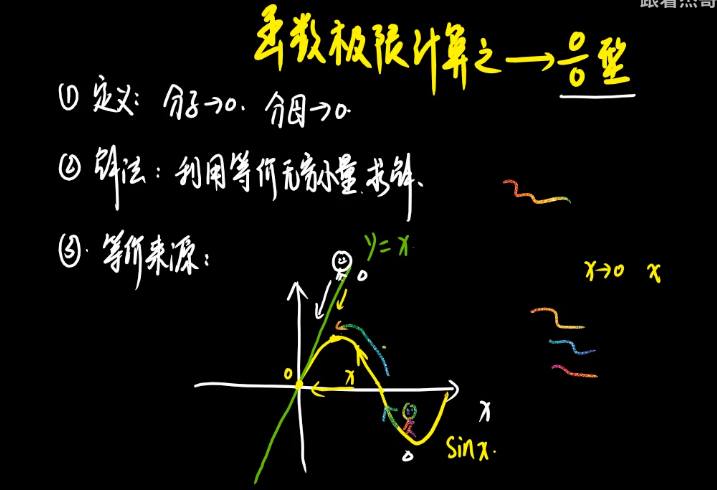 跟着杰哥
函数极限计算之→0/0型
① 定义：分子→0. 分母→0.
② 解法：利用等价无穷小量求解、
③. 等价来源：
y=x
0
x→0 x
0
x
x
0
sinx.